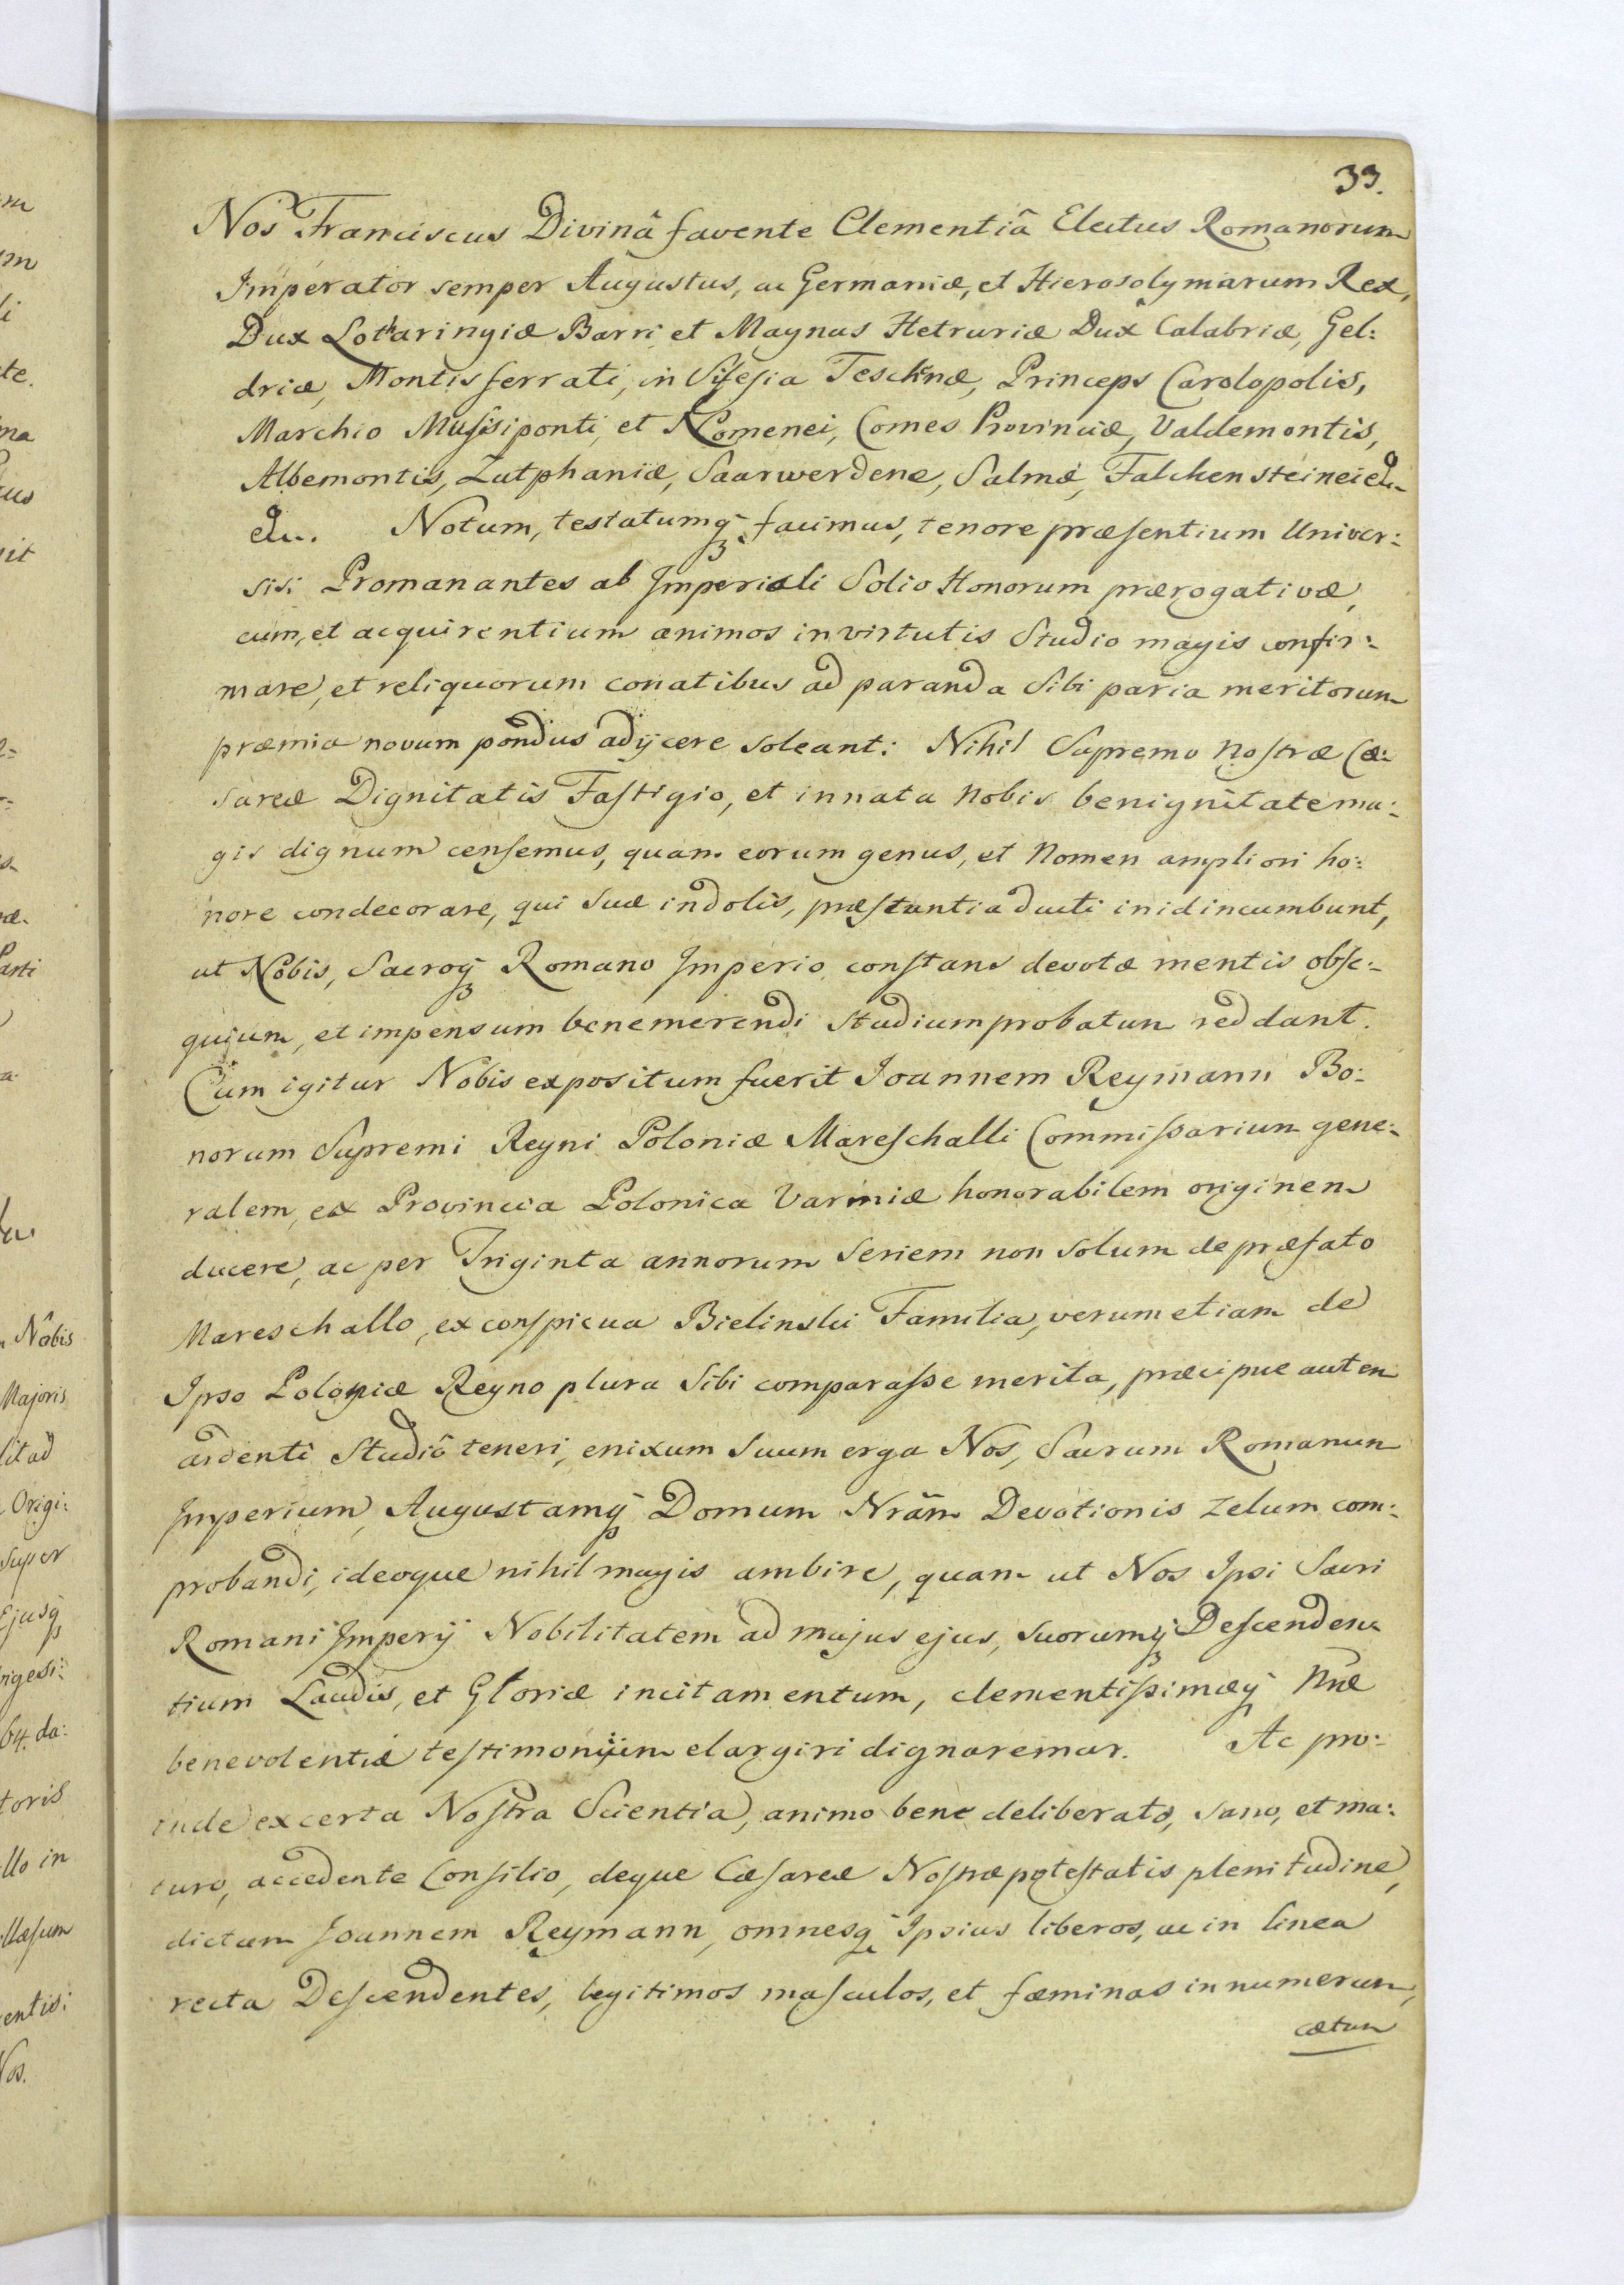 33.
Nos Franciscus Divinâ favente Clementiâ Electus Romanorum
Imperator semper Augustus, ac Germaniæ, et Hierosolymarum Rex,
Dux Lotharingiæ Barri et Magnus Hetruriæ Dux Calabriæ, Gel:
driæ, Montisferrati, in Silesia Teschnæ, Princeps Carolopolis,
Marchio Mussiponti, et Nomenei, Comes Provinciæ, Valdemontis,
Albemontis, Zutphaniæ, Saarwerdenæ, Salmæ, Falckensteinei etc.
etc. Notum, testatumq3 facimus, tenore præsentium Univer:
sis: Promanantes ab Imperiali Solio Honorum prærogativæ,
cum, et acquirentium animos in virtutis Studio magis confir:
mare, et reliquorum conatibus ad paranda Sibi paria meritorum
præmia novum pondus adijcere soleant: Nihil Supremo nostræ Cæ:
sareæ Dignitatis Fastigio, et innata nobis benignitate ma:
gis dignum censemus, quam eorum genus, et Nomen ampliori ho:
nore condecorare, qui suæ indolis, præstantia ducti in id incumbunt,
ut Nobis, Sacroq3 Romano Imperio constans devotæ mentis obse:
quium, et impensum benemerendi studium probatum reddant.
Cum igitur Nobis expositum fuerit Joannem Reymann Bo:
norum Supremi Regni Poloniæ Mareschalli Commissarium gene:
ralem, ex Provincia Polonica Varmiæ honorabilem originem
ducere, ac per Triginta annorum Seriem non solum de præfato
Mareschallo, ex conspicua Bielinski Familia, verum etiam de
Ipso Poloniæ Regno plura Sibi comparasse merita, præcipue autem
ardenti Studiô teneri, enixum suum erga Nos, Sacrum Romanum
Imperium, Augustamq3 Domum Nrãm Devotionis zelum com:
probandi, ideoque nihil magis ambire, quam ut Nos Ipsi Sacri
Romani Imperij Nobilitatem ad majus ejus, suorumq3 Descenden:
tium Laudis, et Gloriæ incitamentum, clementissimæq3 Nræ
benevolentiæ testimonium elargiri dignaremur. Ac pro:
inde ex certa Nostra Scientia, animo bene deliberato, sano, et ma:
turo, accedente Consilio, deque Cæsareæ Nostræ potestatis plenitudine,
dictum Joannem Reymann, omnesq3 Ipsius liberos, ac in linea
recta Descendentes, legitimos masculos, et fæminas in numerum,
cætum